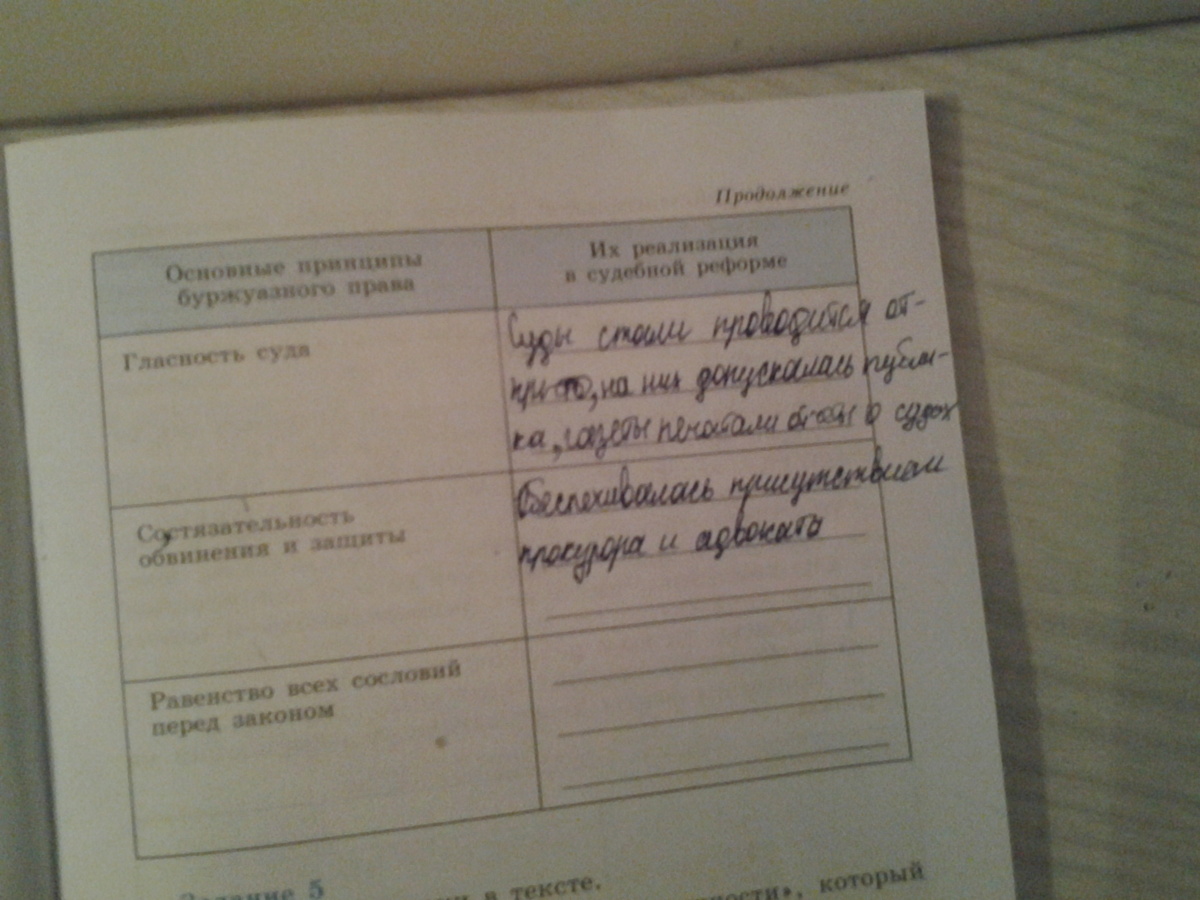 Продолжение
Основные принципы
буржуазного права
Их реализация
в судебной реформе
Гласность суда
Суды стали проводится от-
кры то, на них допускалась публи-
ка, газеты печатали отчёты о судах
Состязательность
обвинения и защиты
Обеспечивалась присутствием
прокурора и адвоката
Равенство всех сословий
перед законом
Задание 5
в тексте.
который